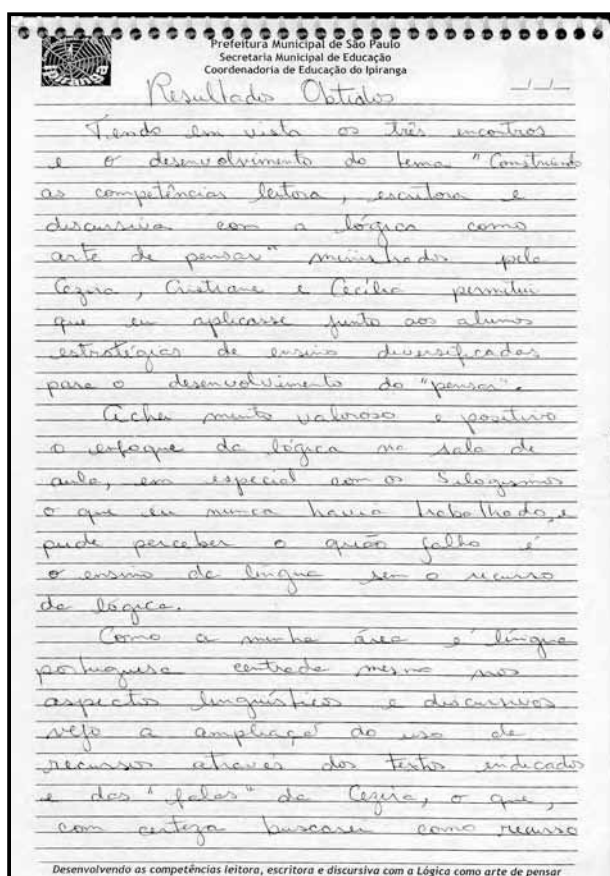 Prefeitura Municipal de São Paulo
Secretaria Municipal de Educação
Coordenadoria de Educação do Ipiranga
__/__/__
Resultados Obtidos
Tendo em vista os três encontros
e o desenvolvimento do tema "Construindo
as competências leitora, escritora e
discursiva com a lógica como
arte de pensar" ministrados pela
Cezira, Cristiane e Cecília permitiu
que eu aplicasse junto aos alunos
estratégias de ensino diversificadas
para o desenvolvimento do "pensar".
Achei muito valoroso e positivo
o enfoque da lógica na sala de
aula, em especial com os Silogismos
o que eu nunca havia trabalhado, e
pude perceber o quão falho é
o ensino da língua sem o recurso
da lógica.
Como a minha área é língua
portuguesa centrada mesmo nos
aspectos linguísticos e discursivos
vejo a ampliaçã do uso de
recursos através dos textos indicados
e das "falas" da Cezira, o que,
com certeza buscarei como recurso
Desenvolvendo as competências leitora, escritora e discursiva com a Lógica como arte de pensar